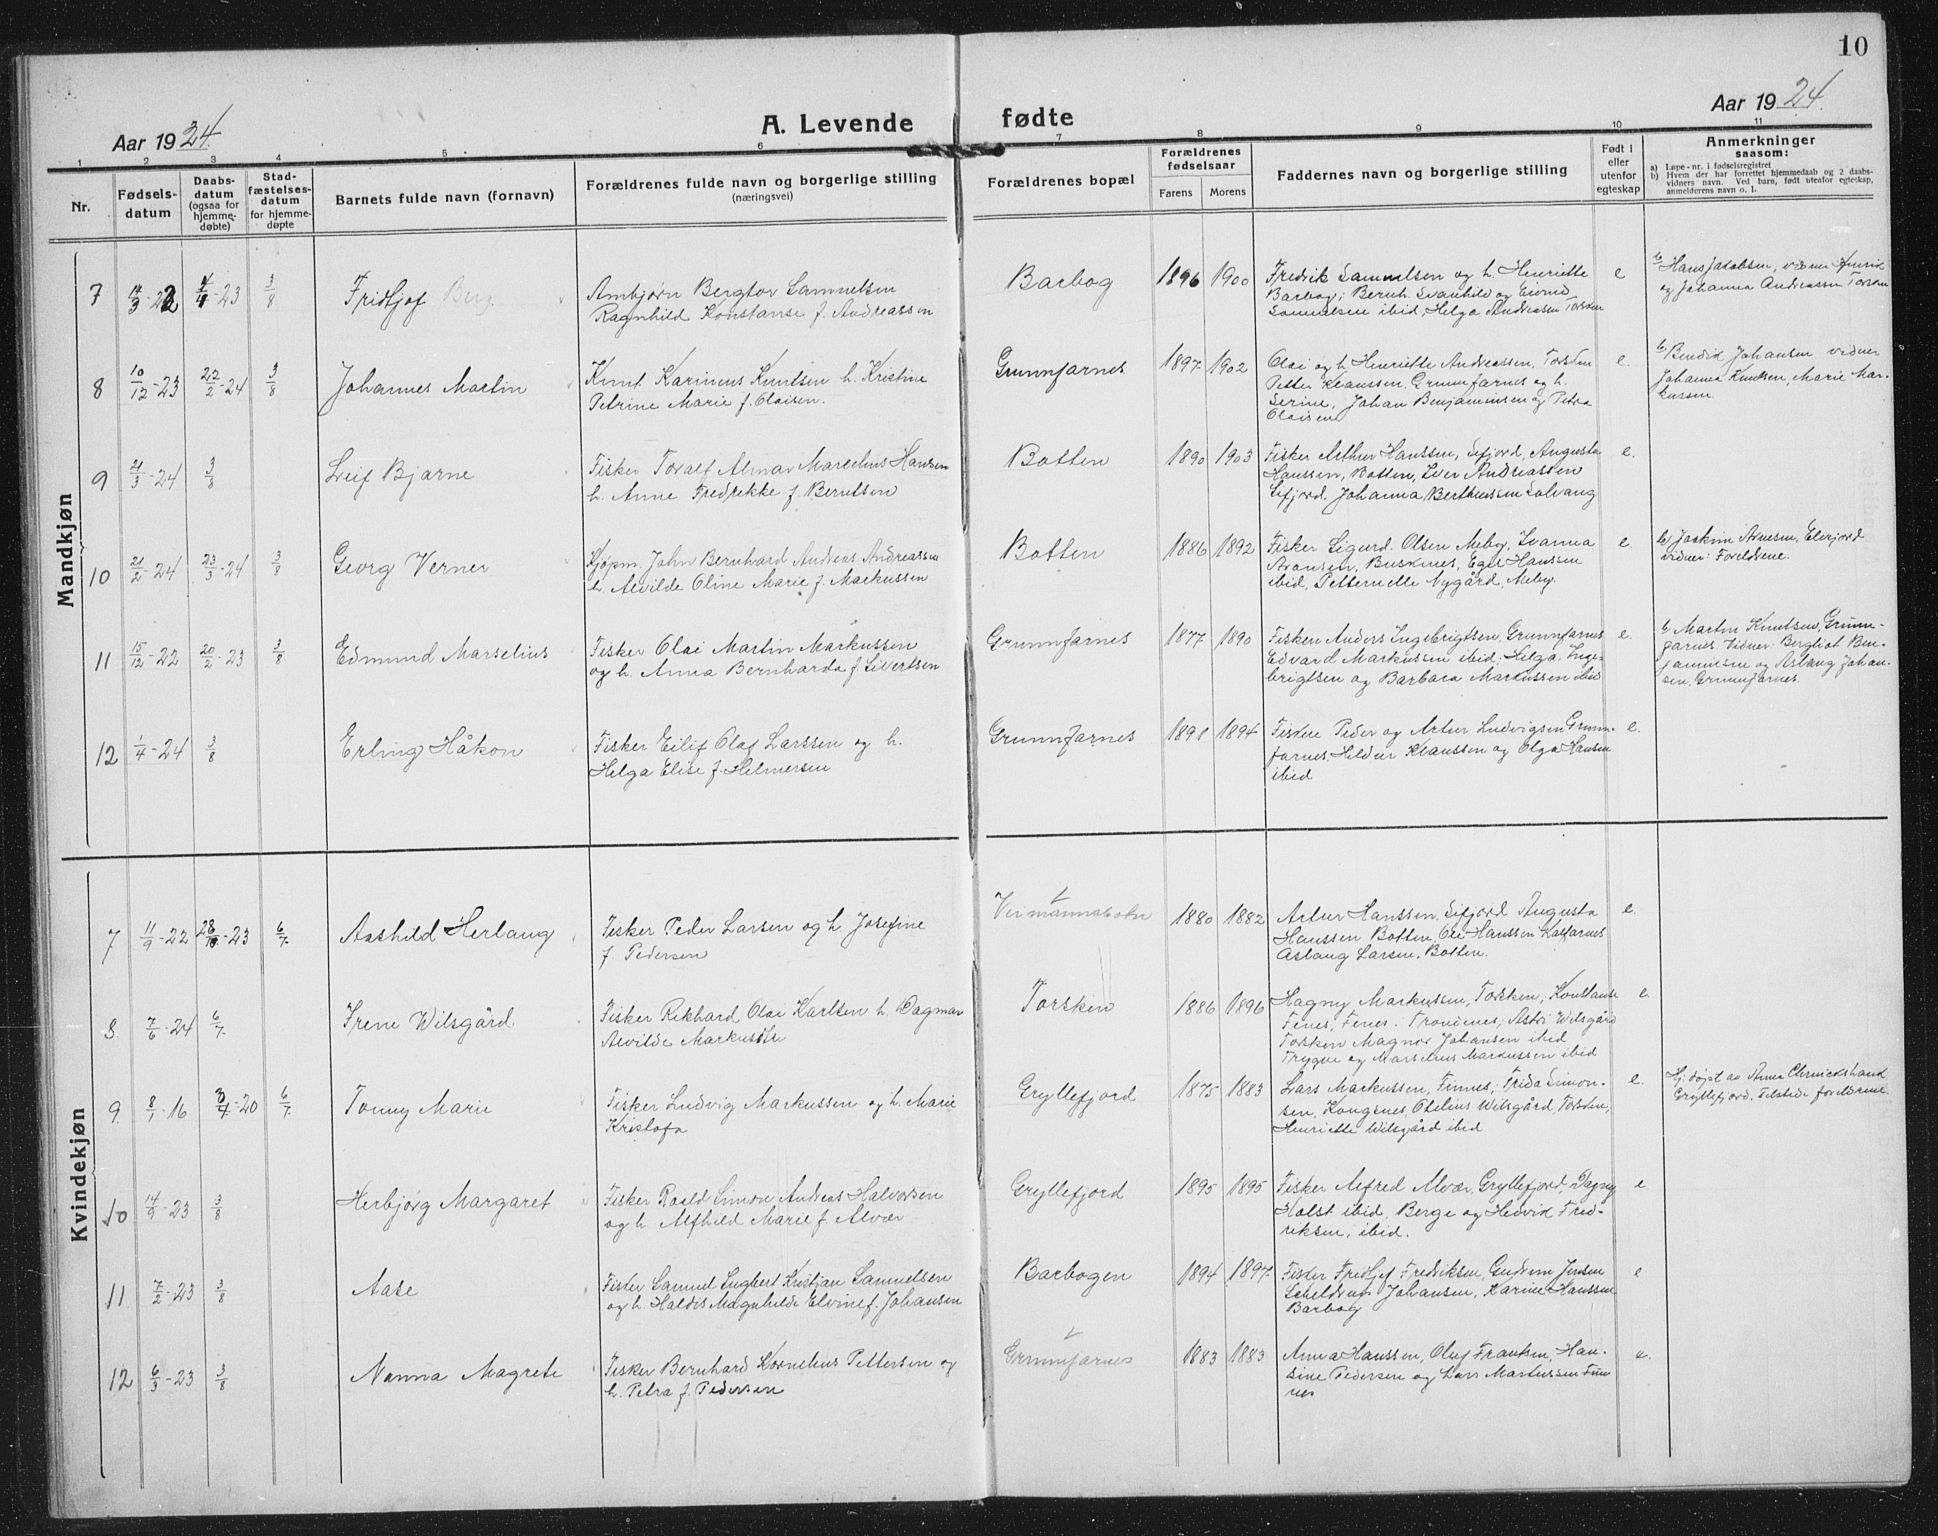 10
Aar 1924.
A. Levende fødte
Aar 1924.
1 2 3 4 5 6 7 8 9 10 11
Nr.
Fødsels-
datum
Daabs-
datum
(ogsaa for
hjemme-
døbte)
Stad-
fæstelses-
datum
for hjemme-
døpte
Barnets fulde navn (fornavn)
Forældrenes fulde navn og borgerlige stilling
(næringsvei)
Forældrenes bopæl
Forældrenes
fødselsaar
Farens Morens
Faddernes navn og borgerlige stilling
Født i
eller
utenfor
egteskap
Anmerkninger
saasom:
a) Løpe-nr. i fødselsregistret
b) Hvem der har forrettet hjemmedaab og 2 daabs-
vidners navn. Ved barn, født utenfor egteskap,
anmelderens navn o. l.
Mandkjøn
7 14/3-22 4/4-23 3/8 Fridtjof Berg
Ambjørn Bergtov Samuelsen
Ragnhild Konstanse f. Andreassen
Barbog 1896 1900
Fredrik Samuelsen og h. Henriette
Barbog; Bernh. Svanhild og Eivind
Samuelsen ibid, Helga Andreasen Torsken
e
b Hans Jakobsen, vidner
og Johanna Andreassen Torsken
8 10/12-23 22/2-24 3/8 Johannes Martin
Knut Karineus Knutsen h. Kristine
Petrine Marie f. Olaisen.
Grunnfarnes 1897 1902
Olai og h. Henriette Andreassen, Torsken
Petter Klaussen, Grunnfarnes og h.
Serine, Johan Benjaminsen og Petra
Olaisen
e.
b Bendik Johansen vidner
Johanna Knudsen, Marie Mar-
kussen.
9 21/3-24 3/8 Leif Bjarne
Fisker Toralf Almar Marselius Hansen
h. Anne Fredrikke f. Berntsen
Botten 1890 1903
Fisker Arthur Hanssen, Sifjord, Augusta
Hanssen, Botten, Iver Andreassen
Sifjord, Johanna Berthenssen Solvang
e.
10 21/2-24 23/3-24 3/8 Georg Verner
Kjøpm. John Bernhard Andreas Andreassen
h. Alvilde Oline Marie f. Markussen
Botten 1886 1892
Fisker Sigurd Olsen Meby, Ivanna
Aronsen, Busknes, Egil Hanssen
ibid, Petternelle Nygård, Meby.
e.
b Joakim Arnesen, Elverjord
vidner: Foreldrene.
11 15/12-22 20/2-23 3/8 Edmund Marselius
Fisker Olai Martin Markussen
og h. Anna Bernharda f. Sivertsen
Grunnfarnes 1877 1890
Fiskere Anders Ingebrigtsen, Grunnfarnes
Edvard Markussen ibid, Helga Inge-
brigtsen og Barbara Markussen ibid
e.
b Martin Knutsen, Grunn-
farnes. Vidner: Bergliot Ben-
jaminsen og Aslaug Johan-
sen, Grunnfarnes.
12 1/4-24 3/8 Erling Håkon
Fisker Eilif Olaf Larssen og h.
Helga Elise f. Helmersen
Grunnfarnes 1891 1894
Fiskere Peder og Artur Ludvigsen Grunn-
farnes, Heldur Klaussen og Olga Hansen
ibid
e.
Kvindekjøn
7 11/9-22 28/10-23 6/7. Aashild Herlaug
Fisker Peder Larsen og h. Josefine
f. Pedersen
1880 1882
Artur Hanssen, Sifjord Augusta
Hanssen Botten, Ole Hanssen Kalfarnes
Aslaug Larsen, Botten.
e.
8. 7/6-24 6/7. Irene Wilsgård
Fisker Rikhard Olai Karlsen h. Dagmar
Alvilde Markussen
Torsken 1886 1896
Hagny Markussen, Torsken, Konstanse
Fenes, Fenes i Trondenes; Astri Wilsgård
Torsken Magnor Johansen ibid
Trygve og Marselius Markussen ibid
e.
9. 8/1-16 3/7-20 6/7. Tonny Marie
Fisker Ludvig Markussen og h. Marie
Kristofa
Gryllefjord 1875 1883
Lars Markussen, Finnes; Frida Simon-
sen, Kongsnes, Otelius Wilsgård, Torsken,
Henriette Wilsgård ibid
e.
Hj. døpt av Anna
Gryllefjord. Tilstede foreldrene.
10 14/9-23 3/8 Herbjørg Margaret
Fisker Roald Simon Andreas Halvorsen
og h. Alfhild Marie f. Alvær
Gryllefjord 1895 1895
Fisker Alfred Alvær, Gryllefjord, Dagny
Holst ibid, Berge og Hedvid Fred-
riksen, ibid.
e
11 7/2-23 3/8 Aase
Fisker Samuel Ingbert Kristian Samuelsen
og h. Haldis Magnhilde Elvine f. Johansen
Barbogen 1894 1897
Fisker Fridtjof Fredriksen, Gudrun Jensen
Scheldrup Johansen, Karine Hanssen
Barbog
e
12 6/3-23 3/8 Nanna Magrete
Fisker Bernhard Kornelius Pettersen og
h. Petra f. Pedersen
Grunnfarnes 1883 1883
Anna Hanssen, Oluf Frantsen, Han-
sine Pedersen og Lars Markussen Finn-
nes
e.